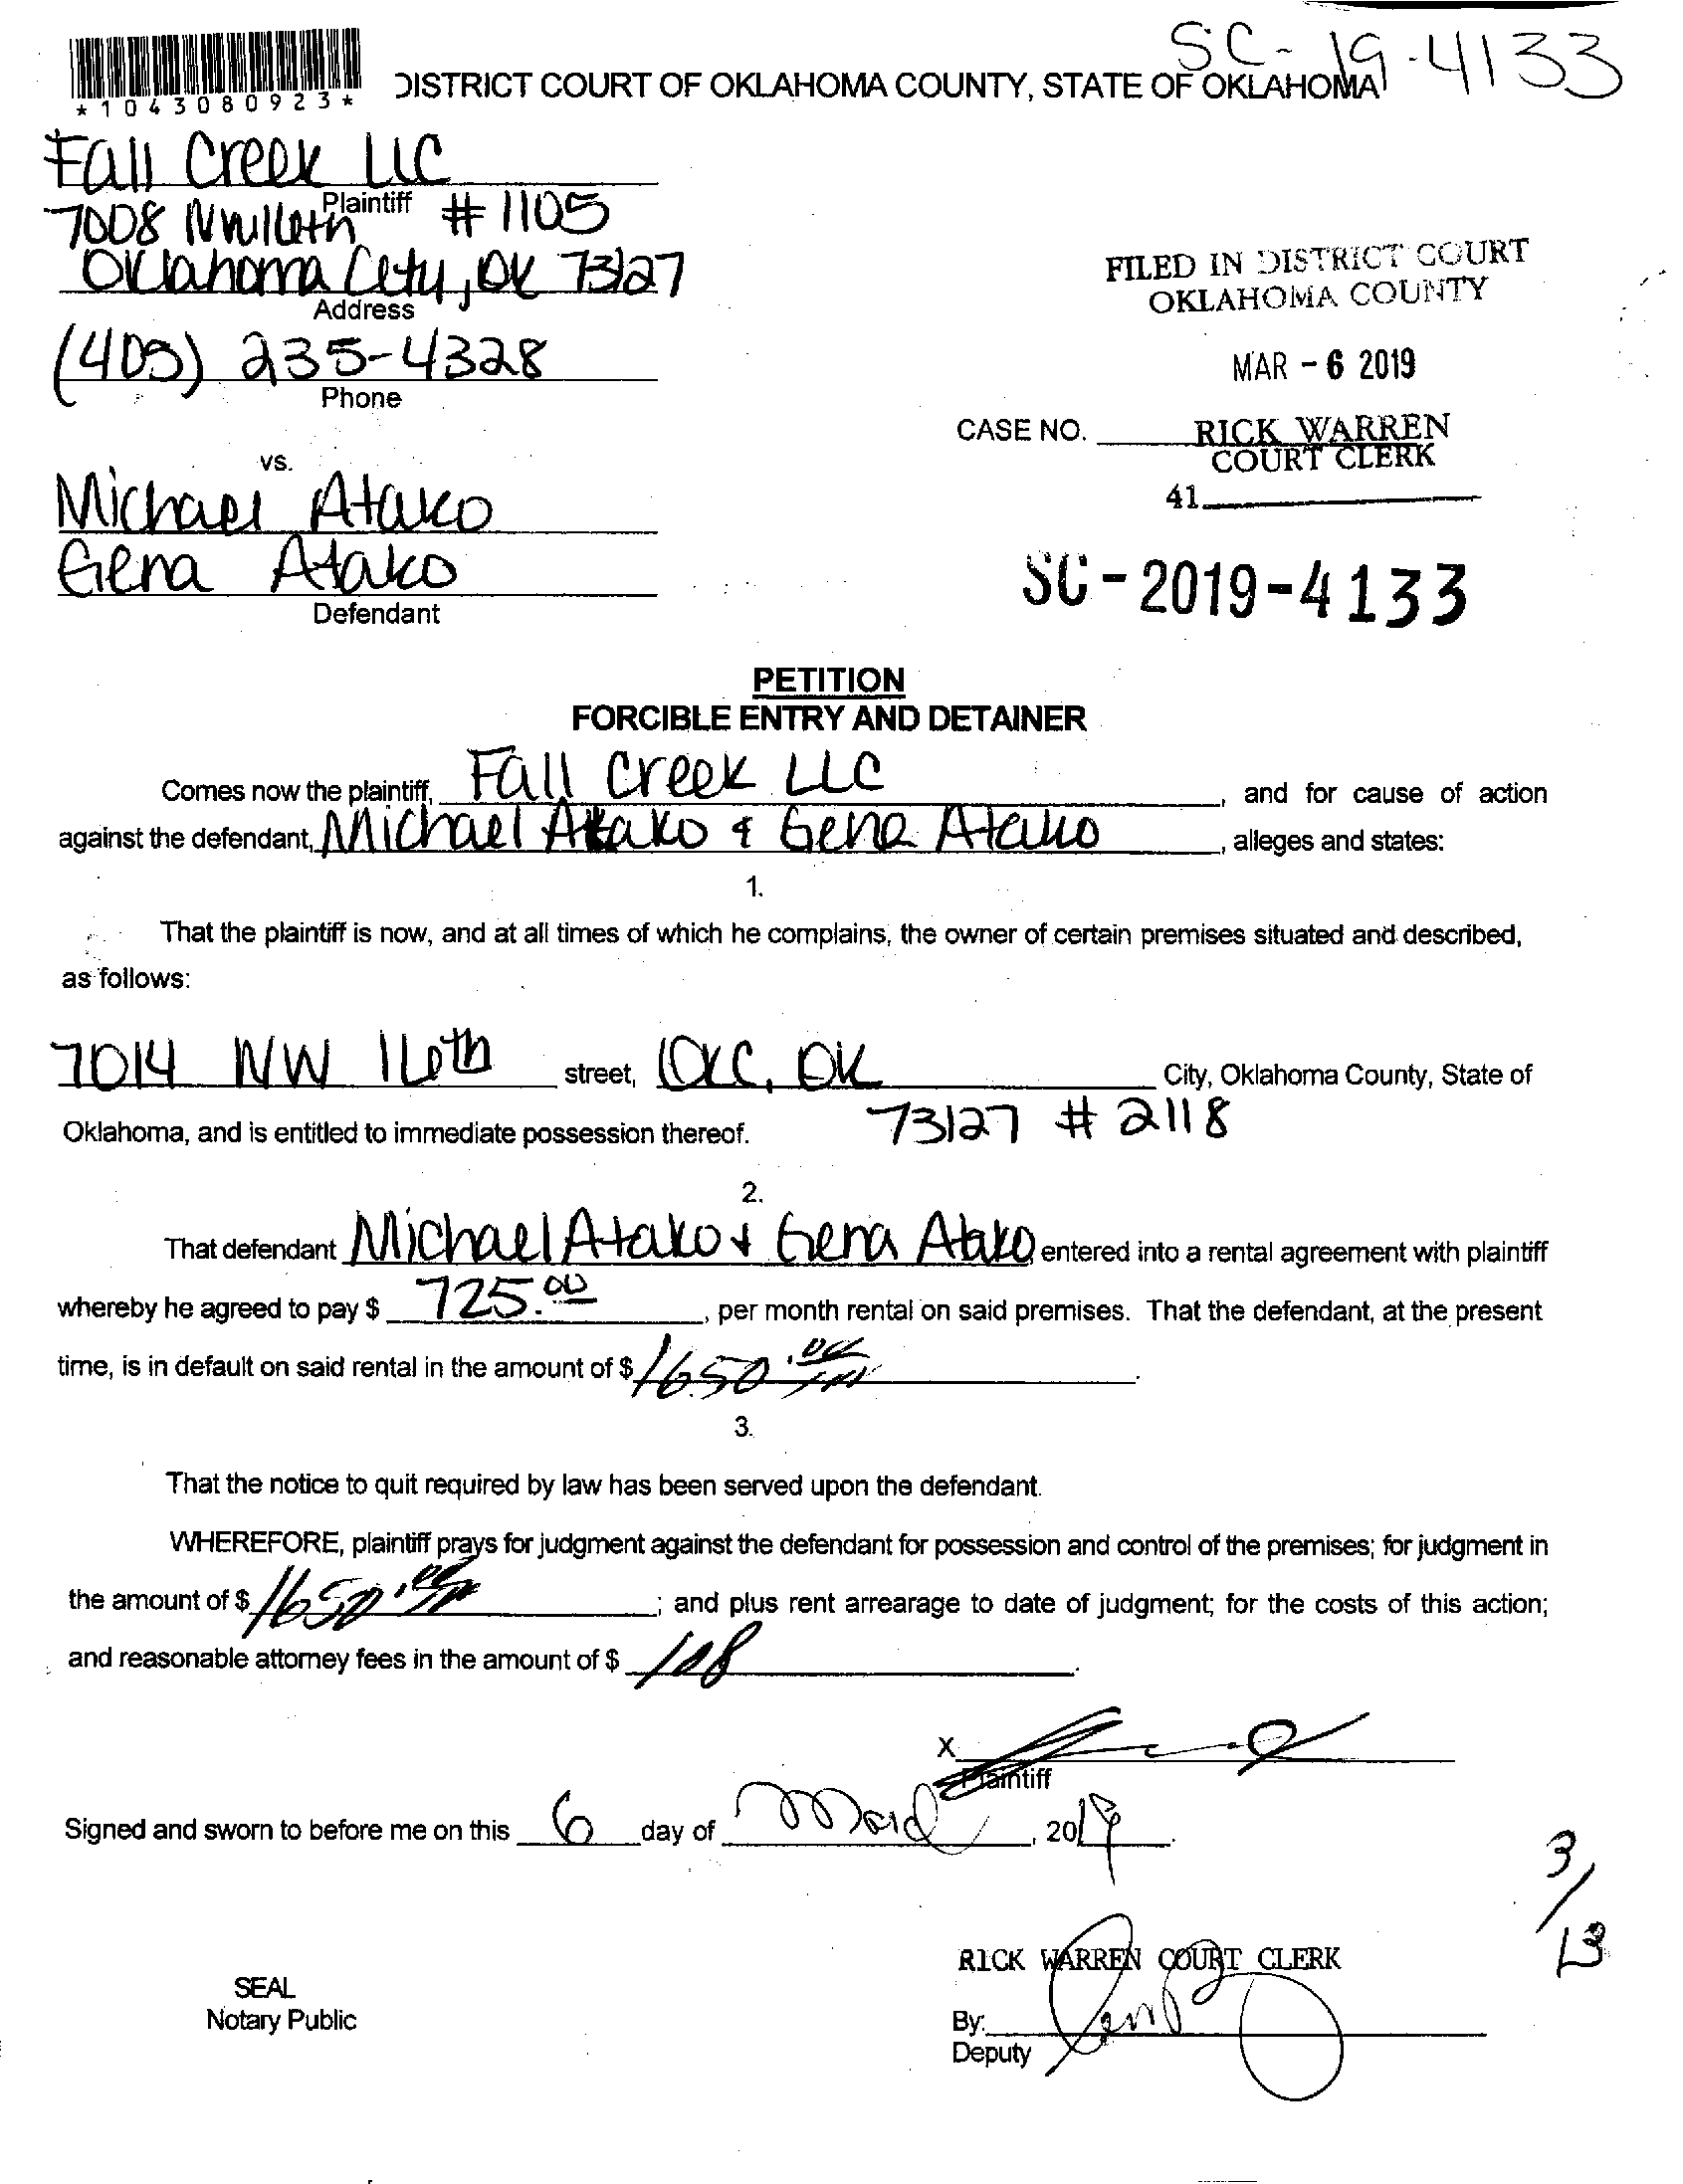 SC-19-4133
*1043080923*
DISTRICT COURT OF OKLAHOMA COUNTY, STATE OF OKLAHOMA
Fall Creek LLC
Plaintiff
7008 NW 16th #1105
Oklahoma City, OK 73127
Address
(405) 235-4328
Phone
FILED IN DISTRICT COURT
OKLAHOMA COUNTY
MAR - 6 2019
CASE NO.
RICK WARREN
COURT CLERK
41
vs.
Michael Atako
Gena Atako
Defendant
SC-2019-4133
PETITION
FORCIBLE ENTRY AND DETAINER
Comes now the plaintiff, Fall Creek LLC, and for cause of action
against the defendant, Michael Atako & Gena Atako, alleges and states:
1.
That the plaintiff is now, and at all times of which he complains, the owner of certain premises situated and described,
as follows:
7014 NW 16th street, OKC, OK City, Oklahoma County, State of
Oklahoma, and is entitled to immediate possession thereof. 73127 # 2118
2.
That defendant Michael Atako & Gena Atako, entered into a rental agreement with plaintiff
whereby he agreed to pay $ 725.00, per month rental on said premises. That the defendant, at the present
time, is in default on said rental in the amount of $ 1650.00.
3.
That the notice to quit required by law has been served upon the defendant.
WHEREFORE, plaintiff prays for judgment against the defendant for possession and control of the premises; for judgment in
the amount of $ 1650.00; and plus rent arrearage to date of judgment; for the costs of this action;
and reasonable attorney fees in the amount of $ 108.
X
Plaintiff
Signed and sworn to before me on this 6 day of March, 2019.
3/13
RICK WARREN COURT CLERK
SEAL
Notary Public
By:
Deputy